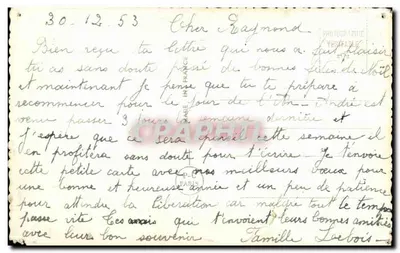 30-12-53 Cher Raymond
Bien reçu ta lettre qui nous a fait plaisir
tu as sans doute passé de bonnes fêtes de Noël
et maintenant je pense que tu te prépare a
recommencer pour le Jour de l'An. André est
venu passer 3 jours la semaine dernière et
j'espère que ce sera pareil cette semaine il
en profitera sans doute pour t'écrire. Je t'envoie
cette petite carte avec nos meilleurs vœux pour
une bonne et heureuse année et un peu de patience
pour attendre la libération car malgré tout le temps
passe vite qui t'envoient leurs bonnes amitiés
avec leur bon souvenir Famille
CPARAMA
MADE IN FRANCE